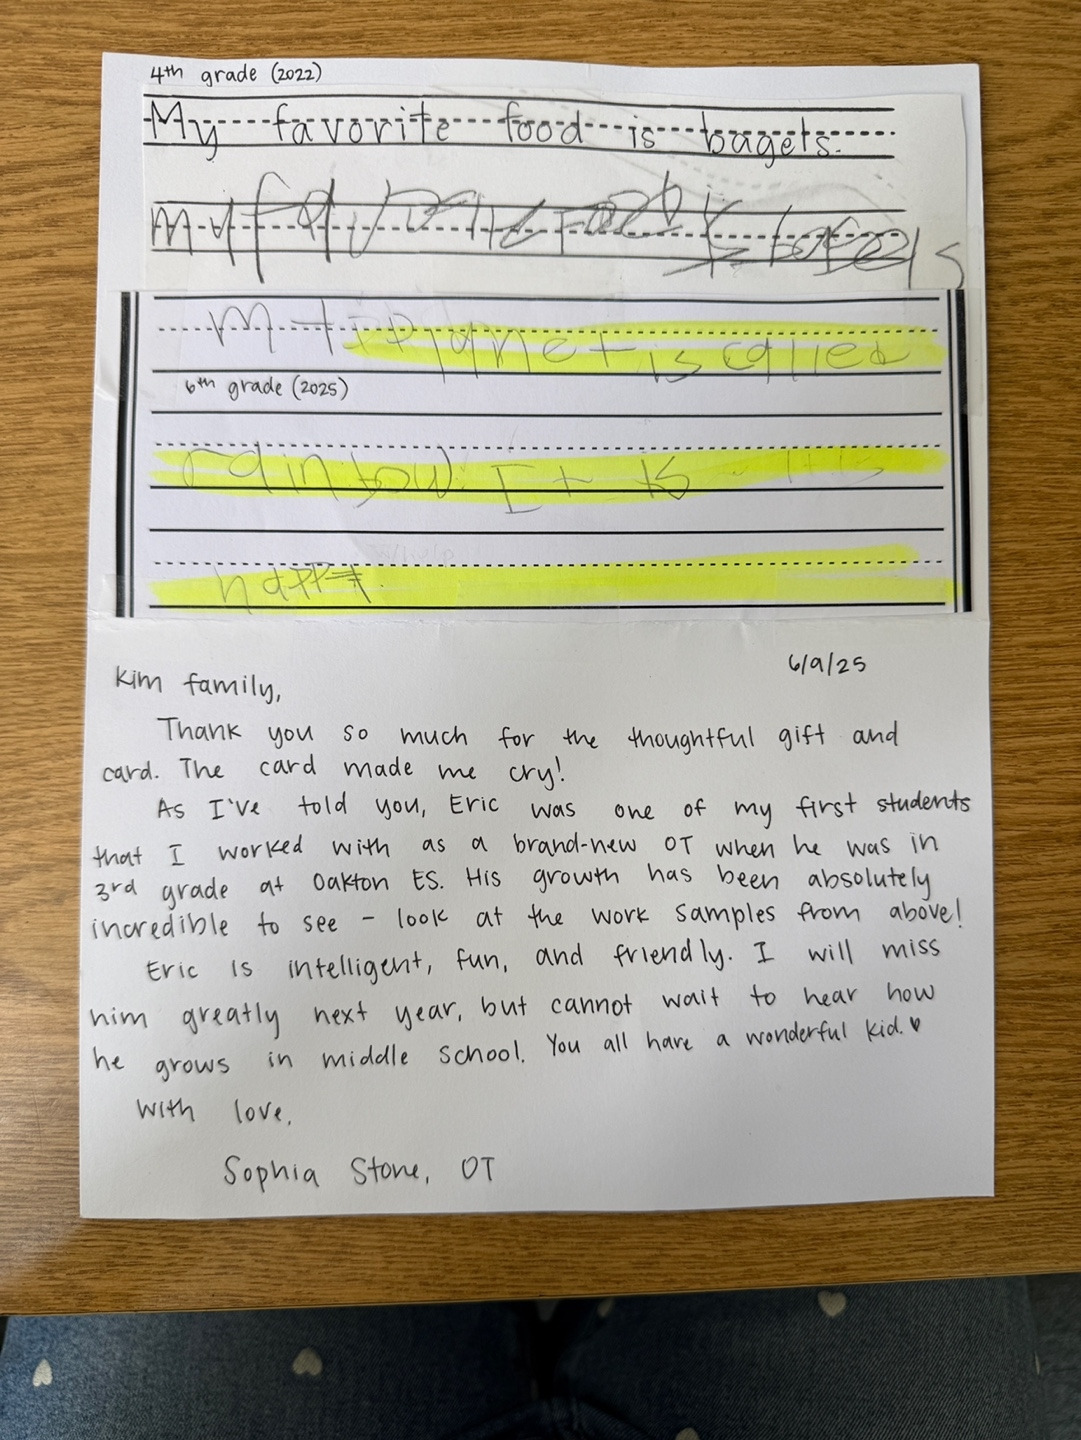 4th grade (2022)
My favorite food is bagels.
my favorite food is bagels
m planet is called
6th grade (2025)
rainbow. It is it is
happy.
6/9/25
Kim family,
Thank you so much for the thoughtful gift and
card. The card made me cry!
As I've told you, Eric was one of my first students
that I worked with as a brand-new OT when he was in
3rd grade at Oakton ES. His growth has been absolutely
incredible to see - look at the work samples from above!
Eric is intelligent, fun, and friendly. I will miss
him greatly next year, but cannot wait to hear how
he grows in middle school. You all have a wonderful kid. ♥
With love,
Sophia Stone, OT